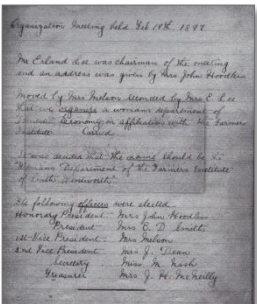 Organization Meeting held Feb 19th. 1897.
Mr Erland Lee was chairman of the meeting
and an address was given by Mrs John Hoodless
moved by Mrs Melson seconded by Mrs E. Lee
that we organize a woman's department of
Domestic Economy in affiliation with the Farmers
Institute Carried
It was decided that the above should be the
"Womans Department of the Farmers Institute
of South Wentworth"
The following officers were elected
Honorary President Mrs John Hoodless
President Mrs E. D. Smith
1st Vice President Mrs Melson
2nd Vice President Mrs J. Dean
Secretary Miss M. Nash
Treasurer Mrs J. H. McNeilly